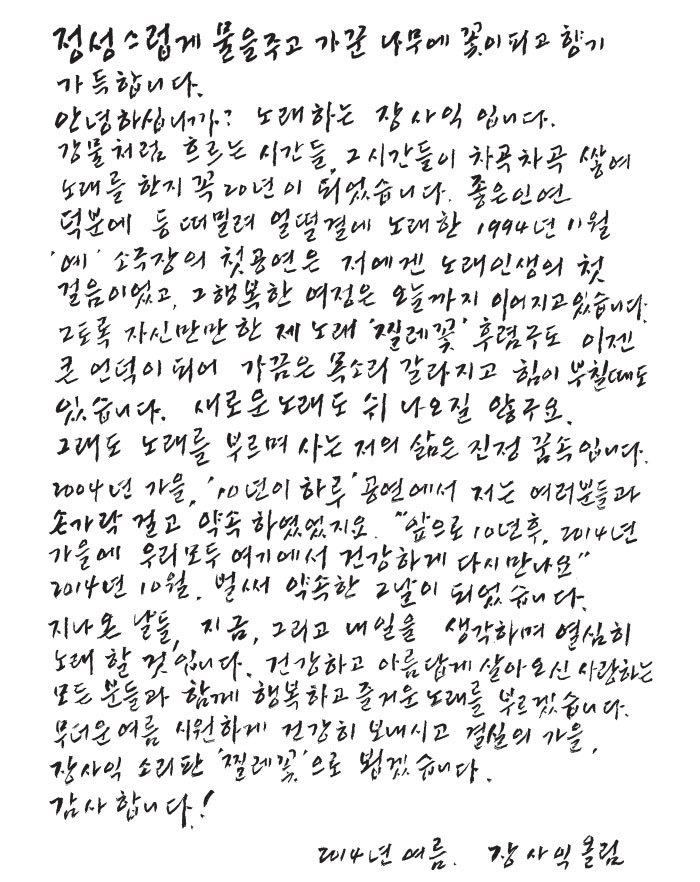 정성스럽게 물을주고 가꾼 나무에 꽃이피고 향기
가득합니다.
안녕하십니까? 노래하는 장사익 입니다.
강물처럼 흐르는 시간들, 그시간들이 차곡차곡 쌓여
노래를 한지 꼭20년이 되었습니다. 좋은인연
덕분에 등떠밀려 얼떨결에 노래한 1994년 11월
'예' 소극장의 첫공연은 저에겐 노래인생의 첫
걸음이었고, 그행복한 여정은 오늘까지 이어지고있습니다.
그토록 자신만만한 제 노래 '찔레꽃' 후렴구도 이젠
큰 언덕이 되어 가끔은 목소리 갈라지고 힘이 부칠때도
있습니다. 새로운노래도 쉬 나오질 않구요.
그래도 노래를 부르며 사는 저의 삶은 진정 꿈속입니다.
2004년 가을, '10년이 하루' 공연에서 저는 여러분들과
손가락 걸고 약속 하였었지요. "앞으로 10년후, 2014년
가을에 우리모두 여기에서 건강하게 다시만나요"
2014년 10월. 벌써 약속한 그날이 되었습니다.
지나온 날들, 지금, 그리고 내일을 생각하며 열심히
노래 할 것입니다. 건강하고 아름답게 살아오신 사랑하는
모든 분들과 함께 행복하고 즐거운 노래를 부르겠습니다.
무더운여름 시원하게 건강히 보내시고 결실의 가을,
장사익 소리판 '찔레꽃'으로 뵙겠습니다.
감사합니다!
2014년 여름. 장사익올림